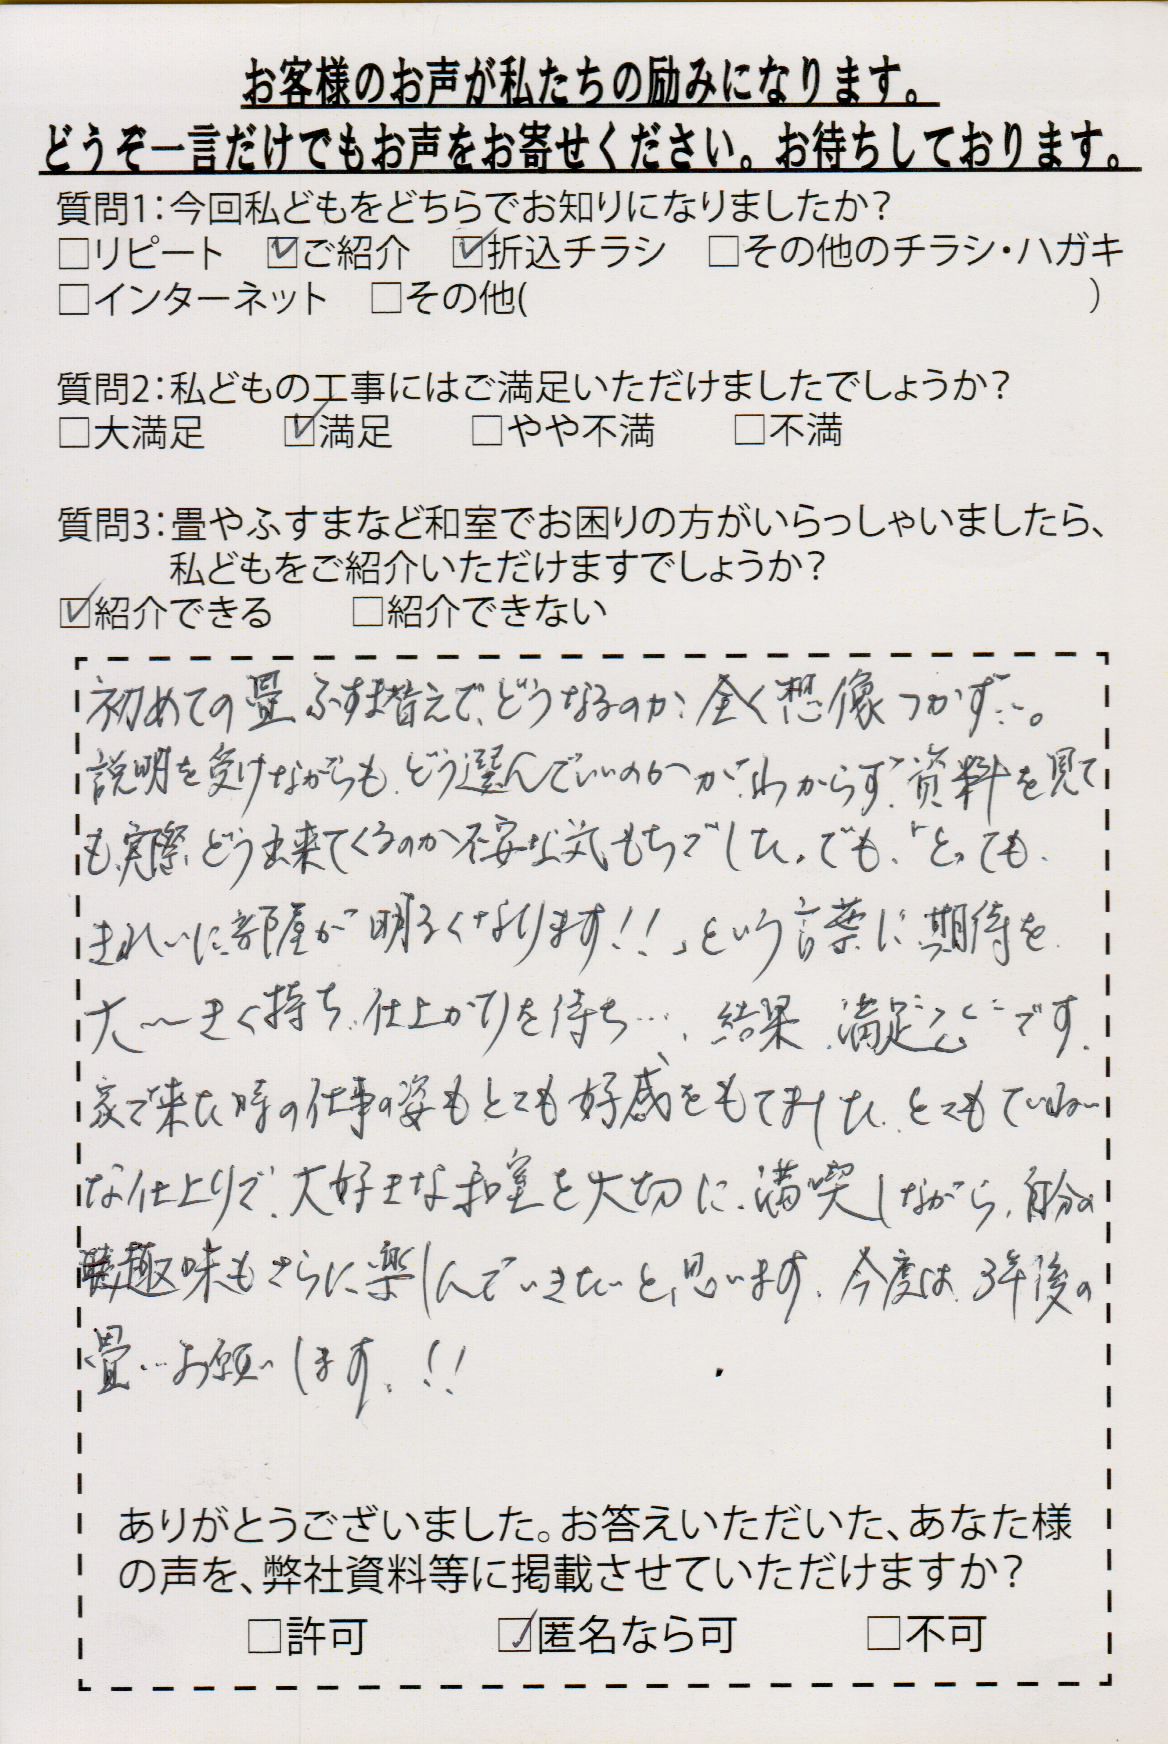 お客様のお声が私たちの励みになります。
どうぞ一言だけでもお声をお寄せください。お待ちしております。
質問1:今回私どもをどちらでお知りになりましたか?
□リピート ☑ご紹介 ☑折込チラシ □その他のチラシ・ハガキ
□インターネット □その他( )
質問2:私どもの工事にはご満足いただけましたでしょうか?
□大満足 ☑満足 □やや不満 □不満
質問3:畳やふすまなど和室でお困りの方がいらっしゃいましたら、
私どもをご紹介いただけますでしょうか?
☑紹介できる □紹介できない
初めての畳、ふすま替えで、どうなるのか、全く想像つかず…。
説明を受けながらも、どう選んでいいのかがわからず、資料を見て
も、実際、どう出来てくるのか不安な気もちでした。でも、「とっても
きれいに部屋が明るくなります!!」という言葉に期待を
大〜きく持ち、仕上がりを待ち…、結果、満足です。
家で来た時の仕事の姿もとても好感をもてました。とてもていねい
な仕上りで、大好きな和室を大切に、満喫しながら、自分の
趣味もさらに楽しんでいきたいと思います。今度は、3年後の
畳…お願いします!!
ありがとうございました。お答えいただいた、あなた様
の声を、弊社資料等に掲載させていただけますか?
□許可 ☑匿名なら可 □不可